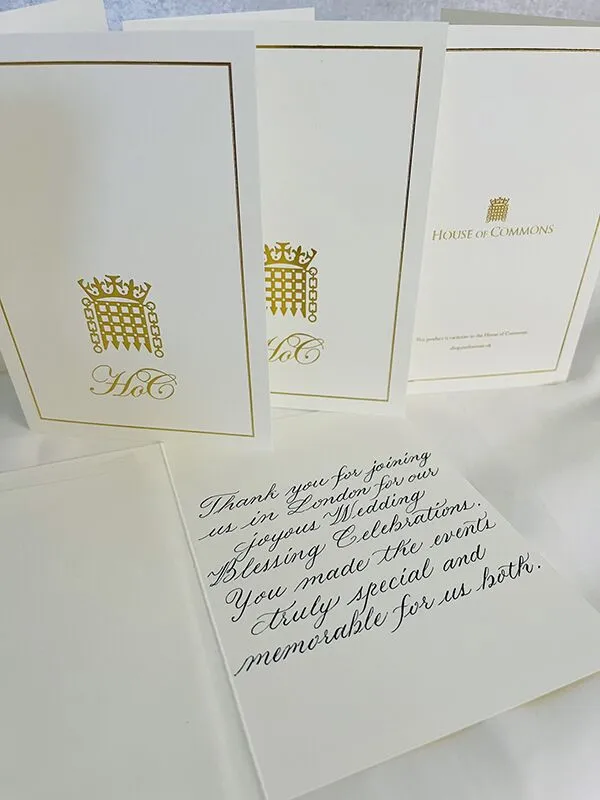 HoC
HoC
HOUSE OF COMMONS
This product is exclusive to the House of Commons
Thank you for joining
us in London for our
joyous Wedding
Blessing Celebrations.
You made the events
truly special and
memorable for us both.